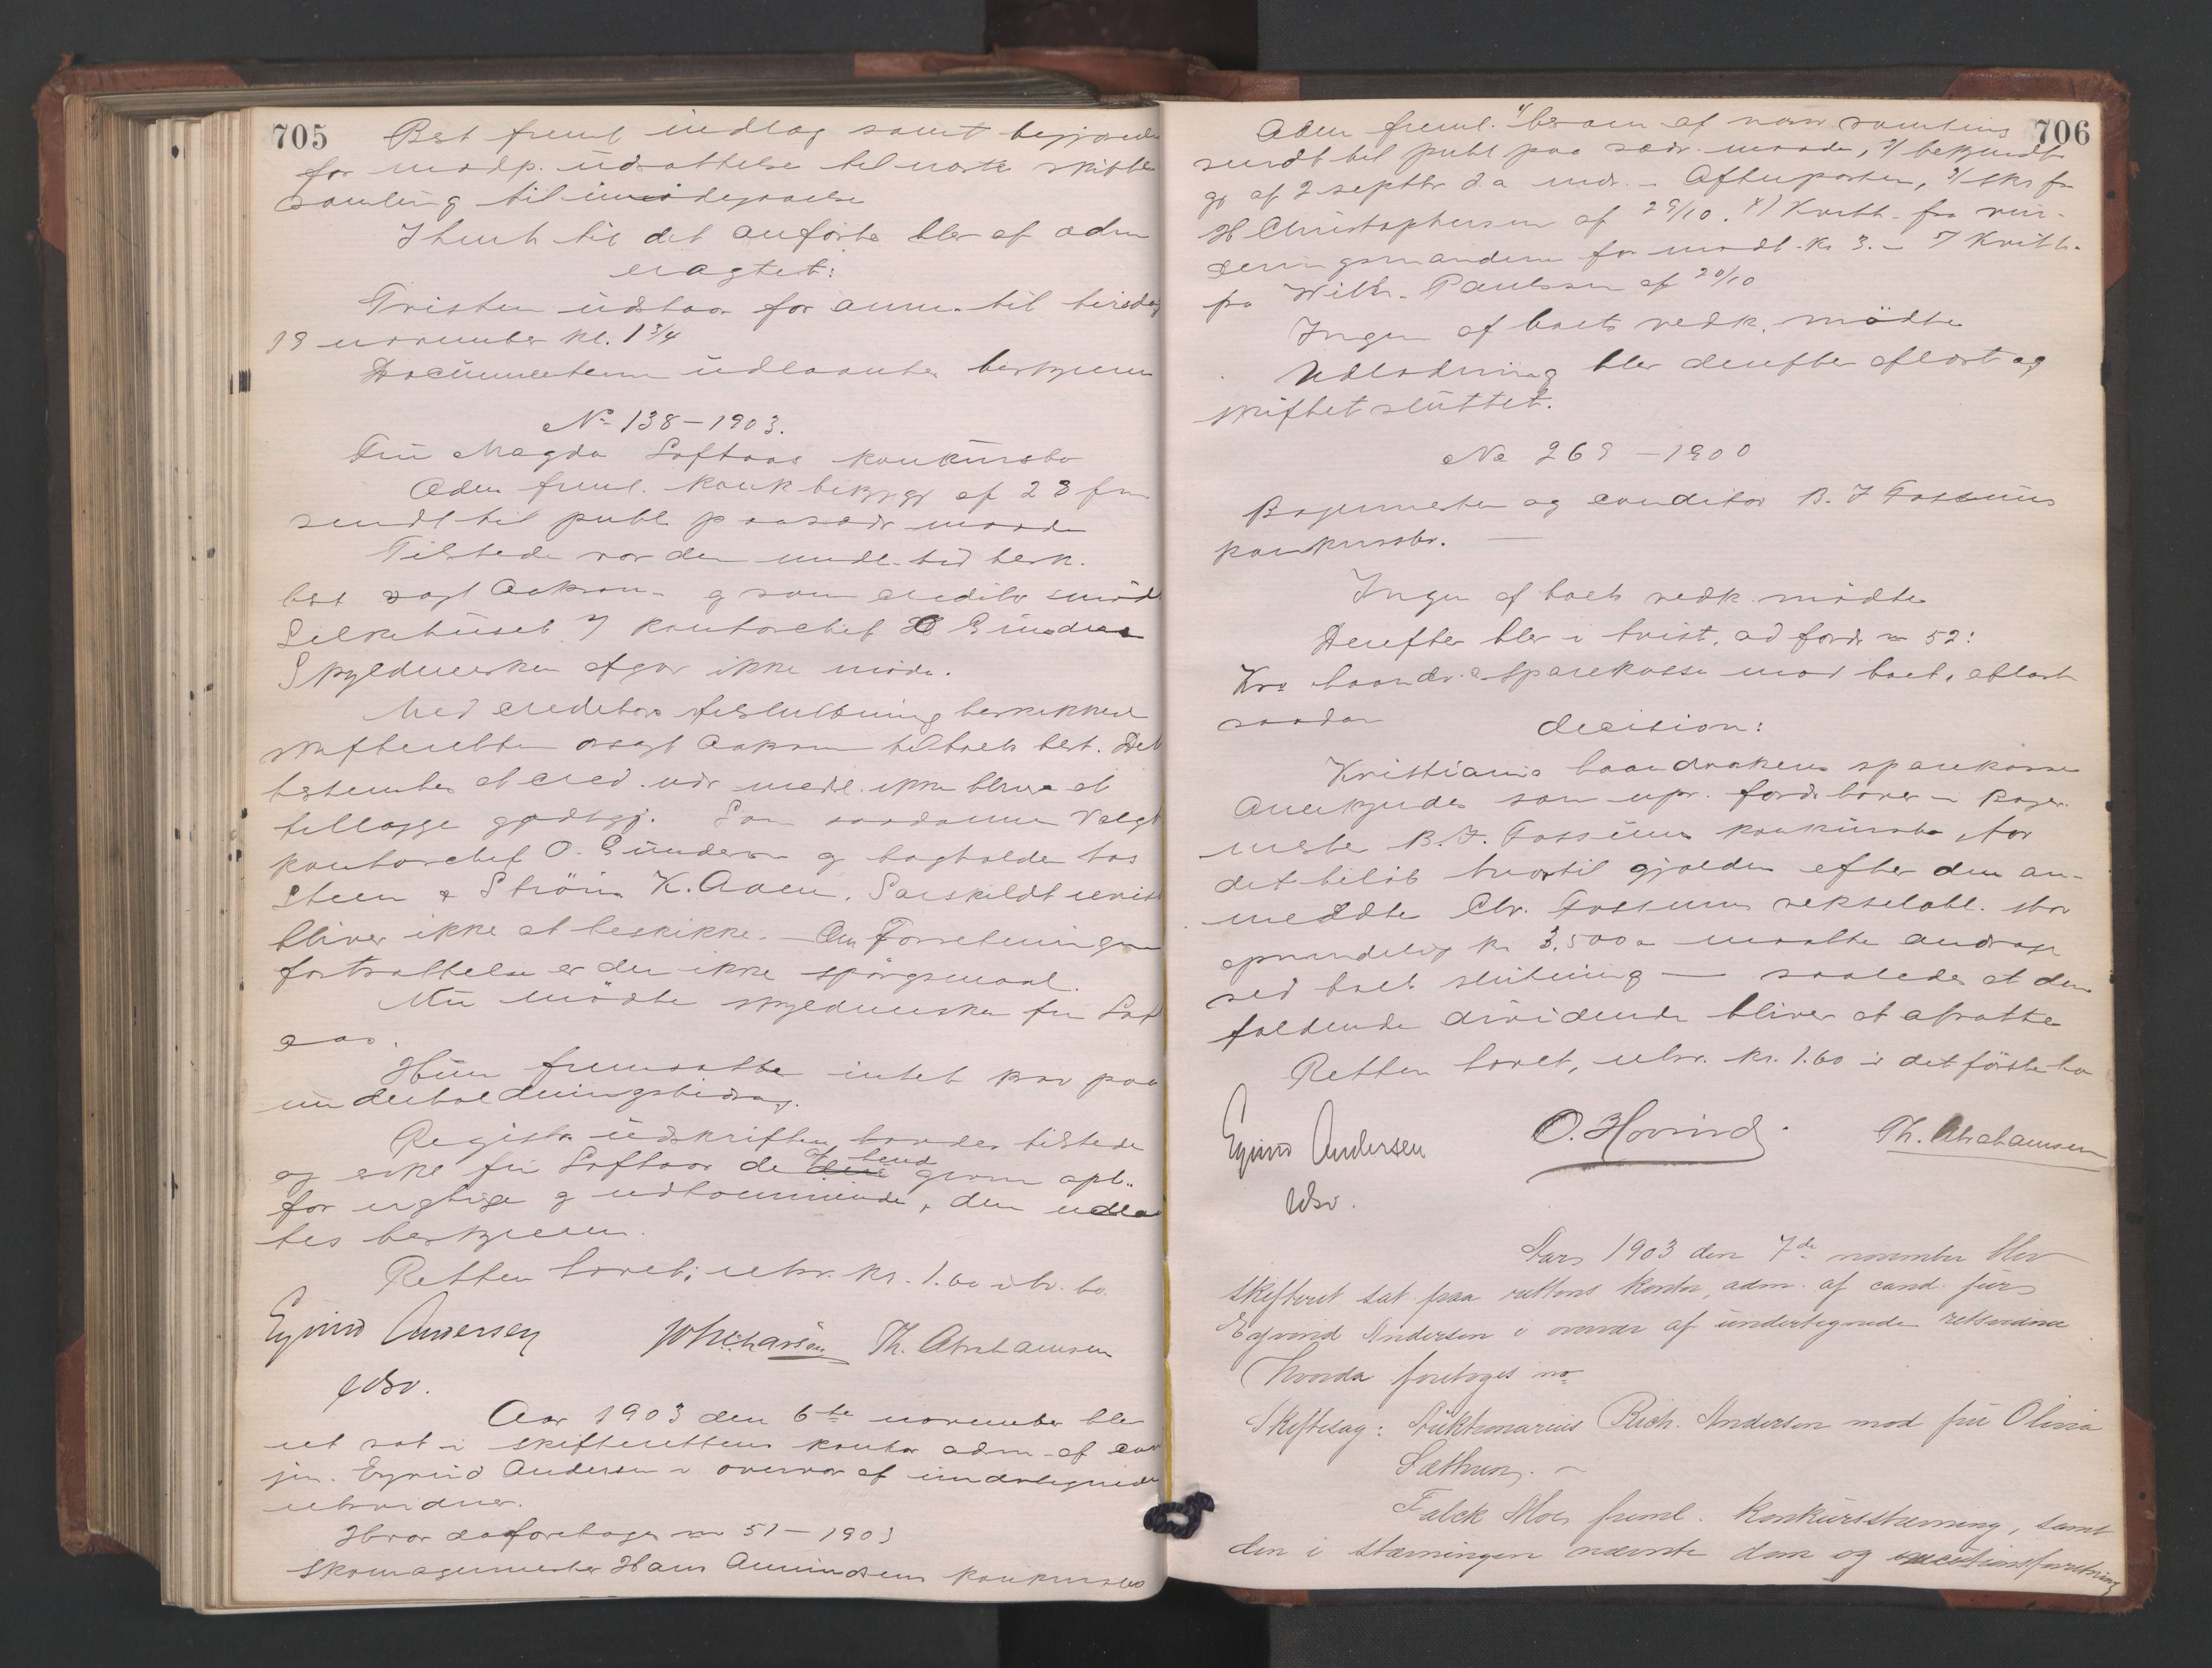 705
Best freml indlæg samt begjærede
for modp. udsættelse til næste skifte
samling til imødegaaelse
I henh til det anførte blev af adm
eragtet:
Tvisten udstaar for anm. til tirsdag
19 november kl. 1 3/4
Documenterne udlaantes beskyt
No 138 – 1903.
Fru Magda Loftaas konkursbo
Adm freml. konk bekjgj af 28 f m
sendt til publ paa sædv maade
Tilstede var den midl. bestyr.
best sagf Aakran og som creditor mødt
Silkehuset v/ kontorchef O Gundersen
Skyldneren ikke møde.
Med creditors tilslutning beskikked
skifteretten Aakran til boets best. Det
bestemtes at cred. udv medl. ikke bliver at
tillægge godtgj. Som saadanne valgt
kontorchef O. Gundersen og bogholder hos
Steen & Strøm K. Aaen. Særskildt revisor
bliver ikke at beskikke. – Om Forretningens
fortsættelse er der ikke spørgsmaal.
Nu mødte skyldnersken fru Loft
aas.
Hun fremsatte intet krav paa
underholdningsbidrag.
Registr udskriften havdes tilstede
og fru Loftaas de af hende givne opl.
for rigtige og udtømmende, den udlaan
tes bestyreren.
Retten hævet; retsv. kr. 1.60 i hv. bo.
Eyvind Andersen Th. Abrahamsen
edsv.
Aar 1903 den 6te november blev
ret sat i skifterettens kontor adm. af cand
jur. Eyvind Andersen i overvær af undertegnede
retsvidner.
Hvor da foretoges no 51 – 1903
Skomagermester Hans Amundsens konkursbo
706
Adm freml. 1/ bevom af samlins
sendt til publ paa sædv. maade, 2/ bekjendt
gj af 2 septbr d.a indr. i Aftenposten, 3/ skr fra
H Christophersen af 29/10. 4/ Kvitt. fra vur-
deringsmændene for modt. kr 3. – 5/ Kvitt.
fra Wilh. Paulsson af 20/10
Ingen af boets vedk. mødte
Udlodning blev derefter oplæst og
skiftet sluttet.
No 269 – 1900
Bagermester og conditor B. F Fossums
konkursbo. —
Ingen af boets vedk. mødte
Derefter blev i tvist. ad fordr no 52:
Kra haandv. sparekasse mod boet, afsagt
saadan decision:
Kristiania haandværkeres sparekasse
anerkjendes som upr. fordr haver i Bager
mester B. F. Fossums konkursbo, for
det beløb hvortil gjælden efter den an-
meldte Chr. Fossums vekselobl. stor
oprindelig kr 3,500 maatte andrage
ved boets slutning — saaledes at den
faldende dividende bliver at afsætte
Retten hævet, retsv. kr. 1.60 i det første bo
Eyvind Andersen O. Hovind. Th. Abrahamsen
edsv.
Aars 1903 den 7de november blev
skifteret sat paa rettens kontor, adm. af cand. jur.
Eyvind Andersen i overvær af undertegnede retsvidne
Hvorda foretoges no
Skiftesag: Auktionarius Rich. Andersen mod fru Olivia
Sæthren. –
Falck Moe freml. Konkursstevning, samt
den i stævningen nævnte dom og executionsforretning